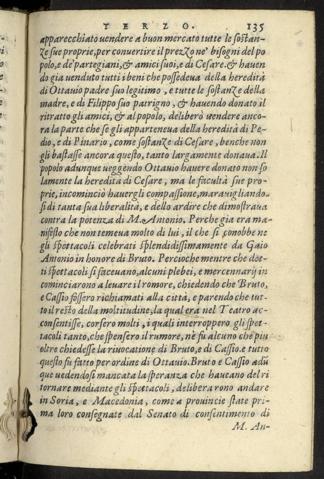 TERZO. 135
apparecchiato uendere a buon mercato tutte le sostan-
ze sue proprie, per conuertire il prezzo ne' bisogni del po
polo, e de' partegiani, & amici suoi, e di Cesare. & hauen
do gia uenduto tutti i beni che possedeua della heredità
di Ottauio padre suo legitimo, e tutte le sostanze della
madre, e di Filippo suo patrigno, & hauendo donato il
ritratto gli amici, & al popolo, deliberò uendere anco-
ra la parte che se gli apparteneua della heredità di Pe-
dio, e di Pinario, come sostanze di Cesare, benche non
gli bastasse ancora questo, tanto largamente donaua. Il
popolo adunque ueggendo Ottauio hauere donato non so
lamente la heredità di Cesare, ma le facultà sue pro-
prie, incominciò hauergli compassione, marauigliando-
si di tanta sua liberalità, e dello ardire che dimostraua
contra la potenza di M. Antonio. Perche gia era ma-
nifesto che non temeua molto di lui, il che si conobbe ne
gli spettacoli celebrati splendidissimamente da Gaio
Antonio in honore di Bruto. Percioche mentre che det-
ti spettacoli si faceuano, alcuni plebei, e mercennarij in
cominciarono a leuare il romore, chiedendo che Bruto,
e Cassio fossero richiamati alla città, e parendo che tut-
to il resto della moltitudine, la qual era nel Teatro ac-
consentisse, corsero molti, i quali interroppero gli spet-
tacoli tanto, che spensero il rumore, ne fu alcuno che piu
oltre chiedesse la riuocatione di Bruto, e di Cassio. e tutto
questo fu fatto per ordine di Ottauio. Bruto e Cassio adū
que uedendosi mancata la speranza che haueano del ri
tornare mediante gli spettacoli, deliberarono andare
in Soria, e Macedonia, come a prouincie state pri-
ma loro consegnate dal Senato di consentimento di
M. An-